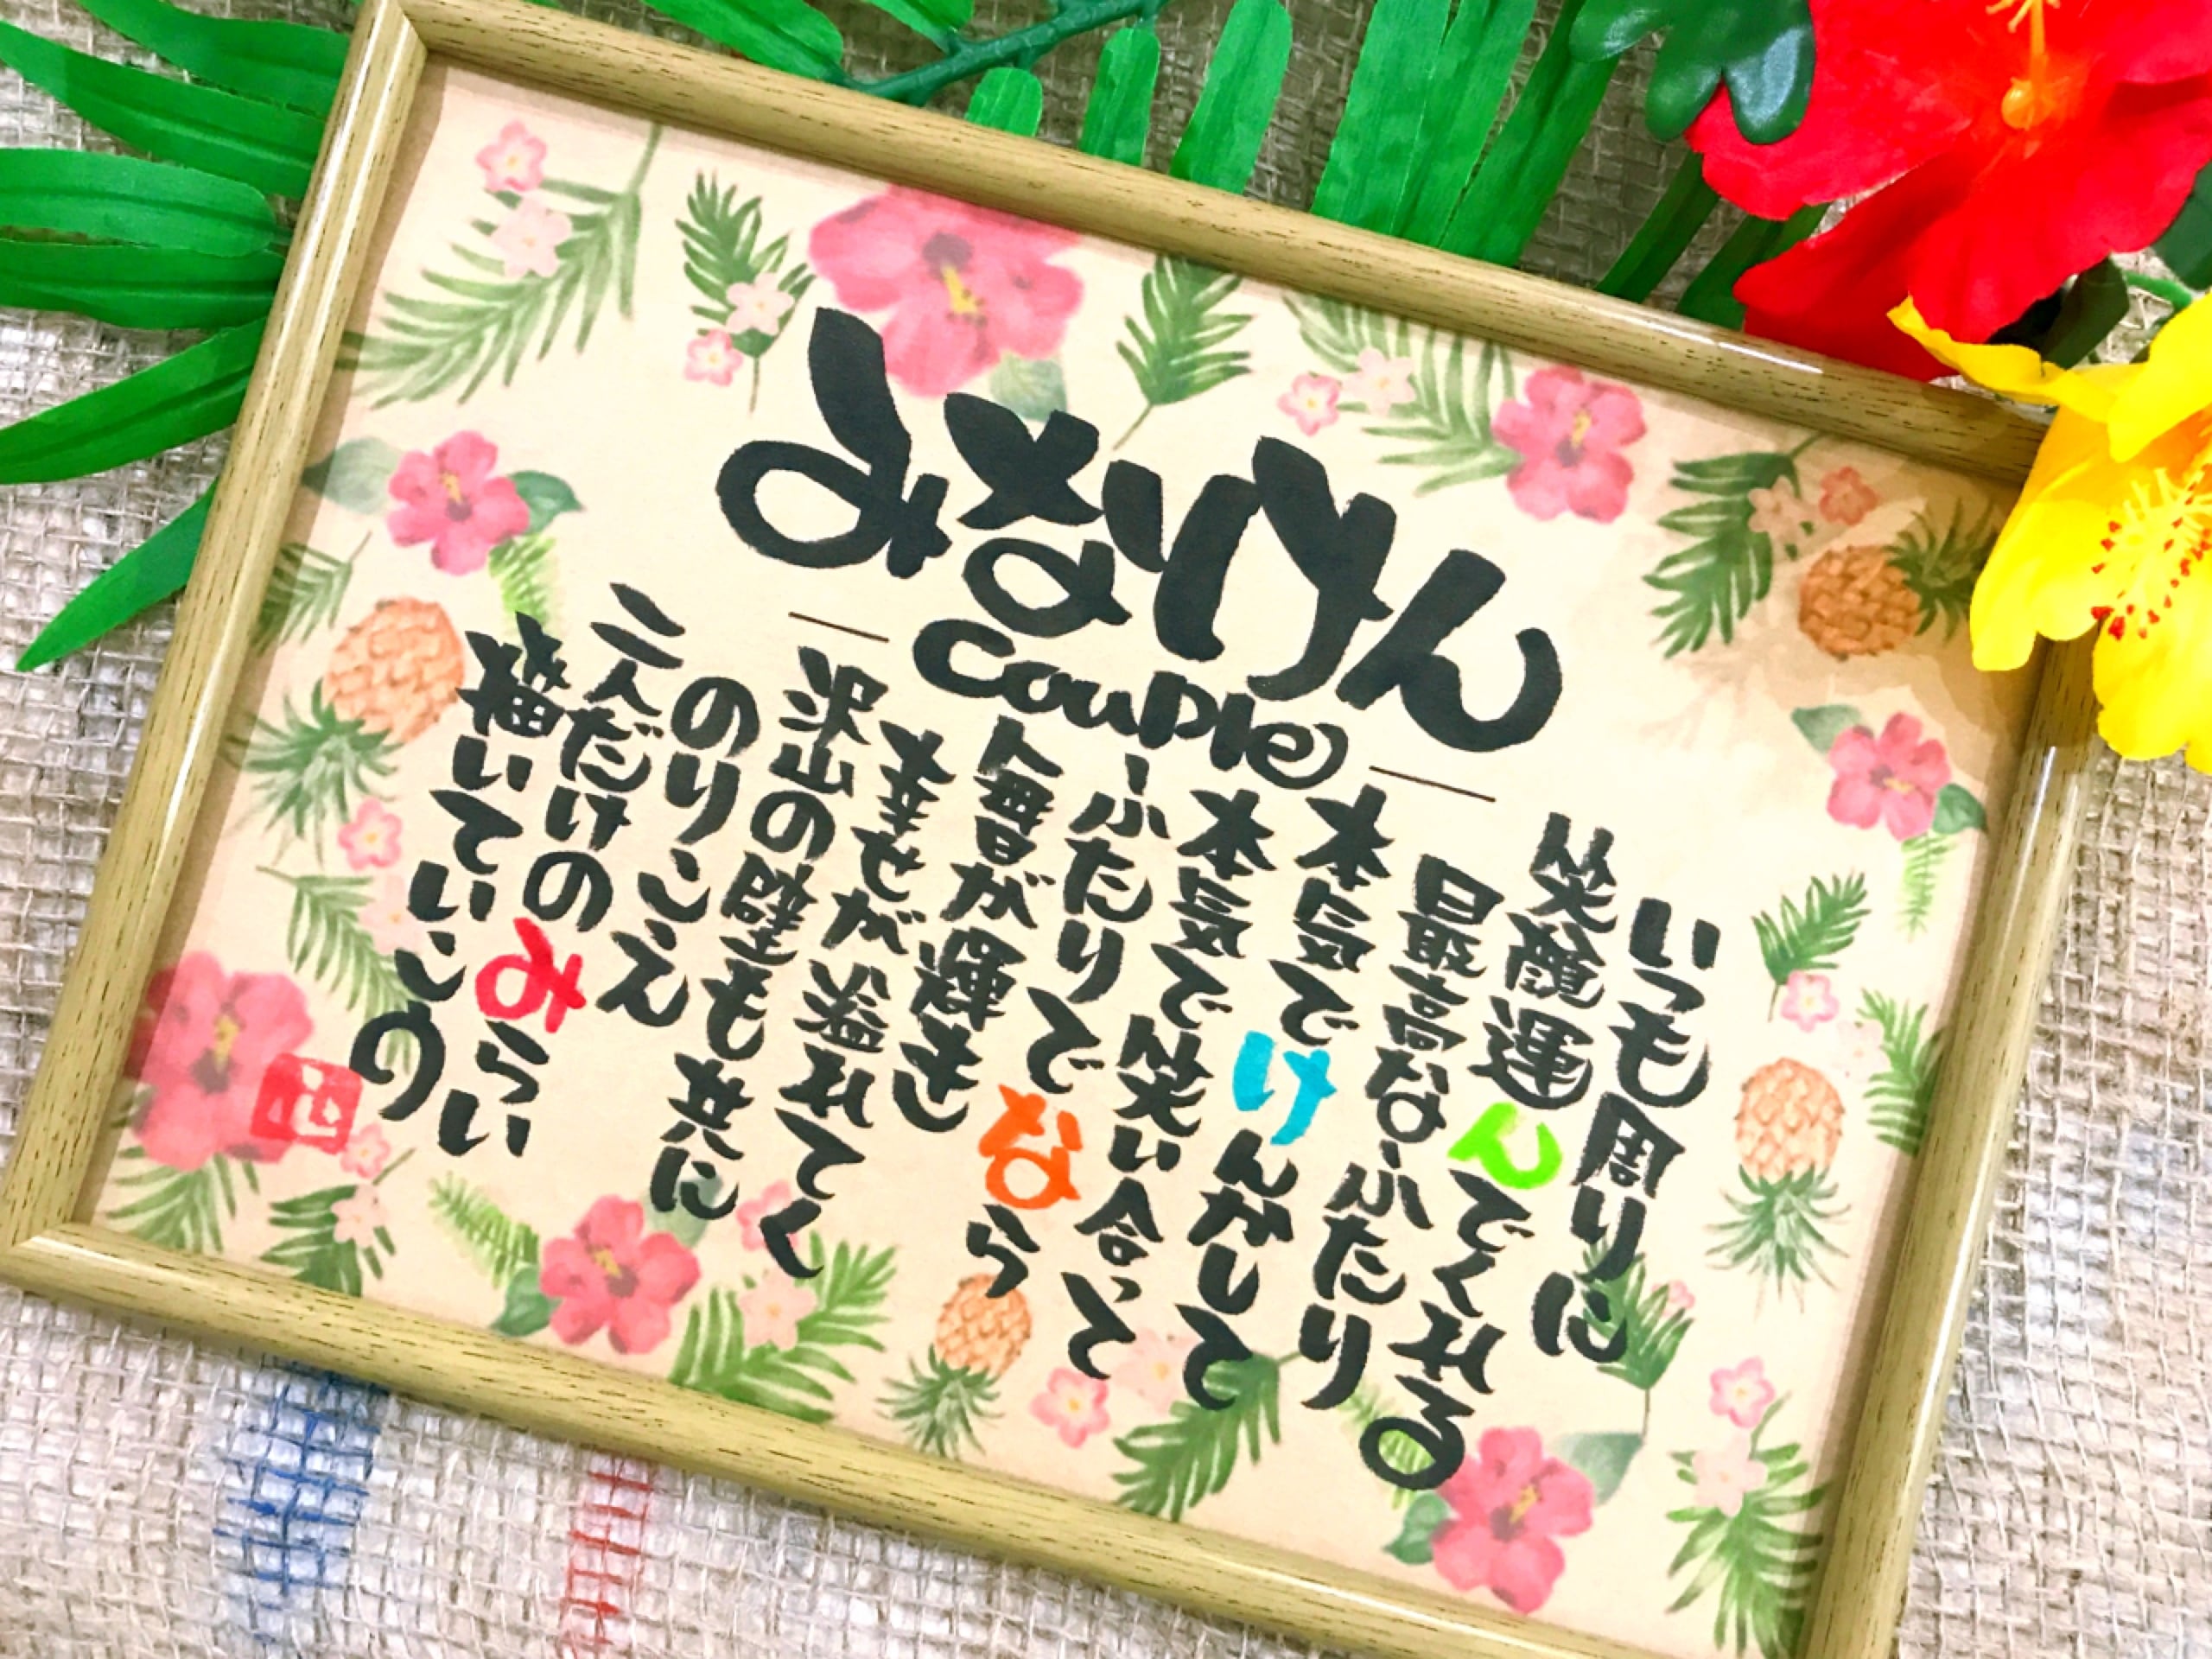 みなけん
couple
いつも周りに
笑顔運んでくれる
最高なふたり
本気でけんかして
本気で笑い合って
ふたりでなら
毎日が輝き
幸せが溢れてく
沢山の壁も共に
のりこえ
二人だけのみらい
描いていこの